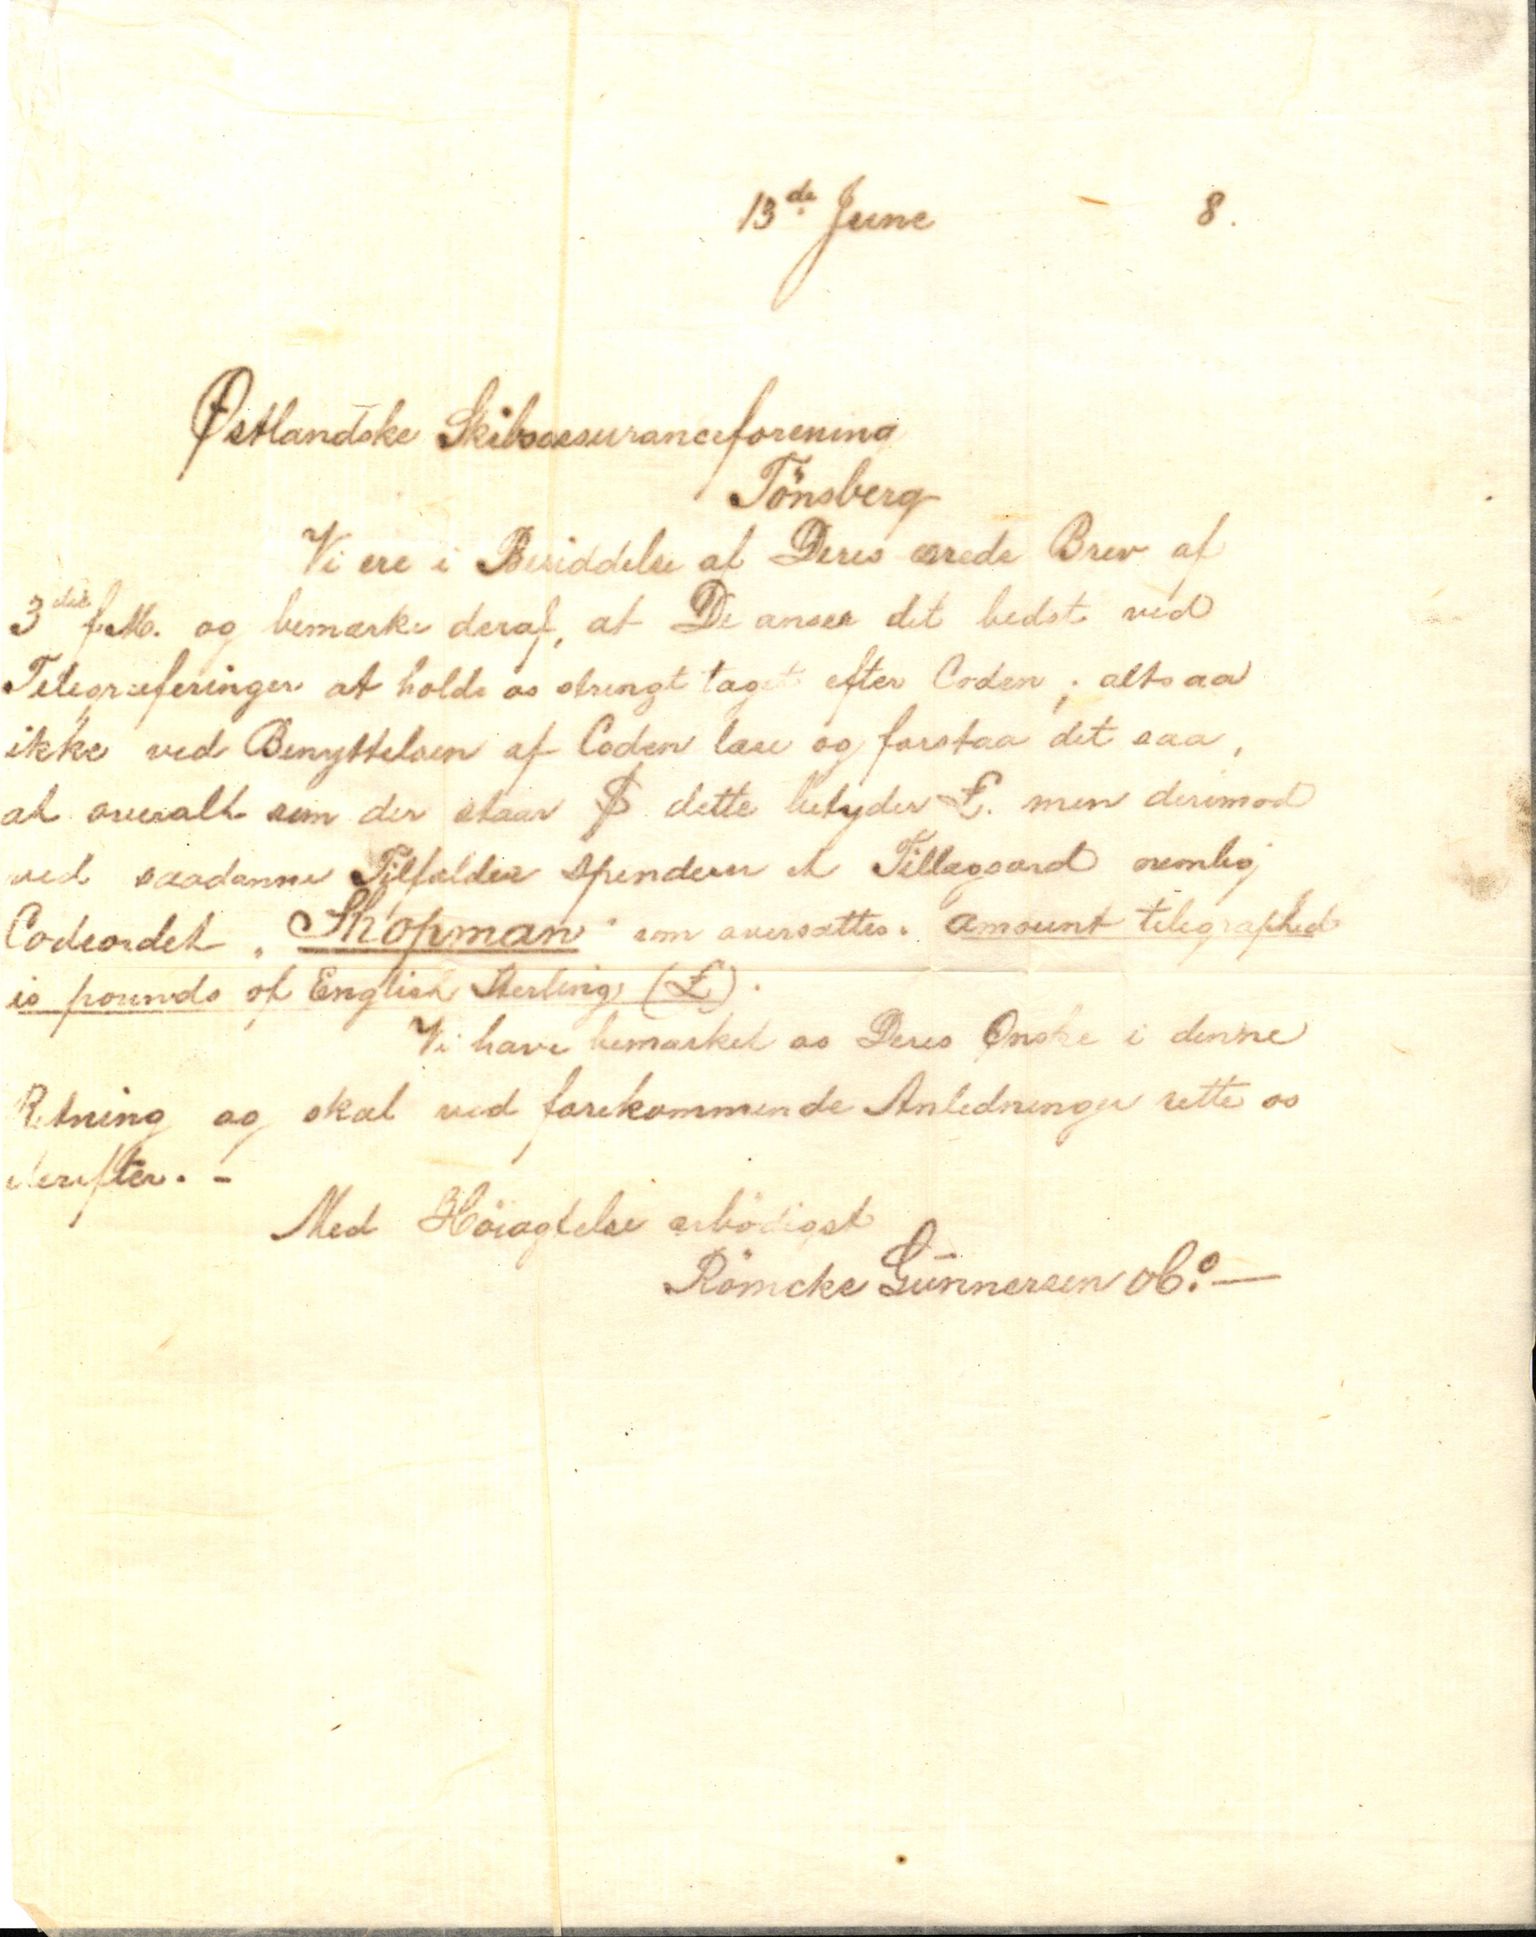 13de June 8.
Østlandske Skibsassuranceforening
Tönsberg
Vi ere i Besiddelse af Deres ærede Brev af
3die f.M. og bemærke deraf, at De anser det bedst ved
Telegraferinger at holde os strengt taget efter Coden; altsaa
ikke ved Benyttelsen af Coden læse og forstaa det saa,
at overalt som der staar $ dette betyder £. men derimod
ved saadanne Tilfælder spenderer et Tillægsord nemlig
Codeordet „Shopman" som oversættes. amount telegraphed
is pounds of English Sterling (£).
Vi have bemærket os Deres Ønske i denne
Retning og skal ved forekommende Anledninger rette os
derefter. -
Med Höiagtelse ærbödigst
Römcke Gunnersen & Co. —